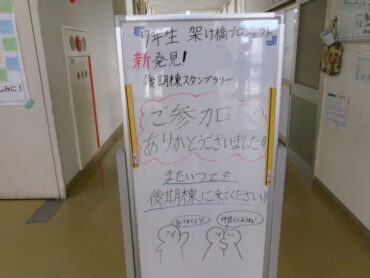 7年生 架け橋プロジェクト
新発見!
後期棟スタンプラリー
ご参加
ありがとうございました!!
またいつでも
後期棟に来てください!!
ありがとう!